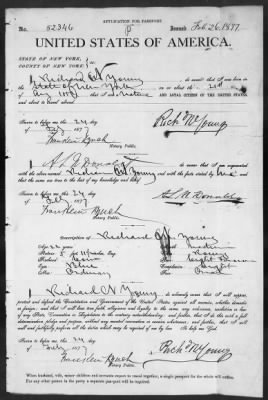 APPLICATION FOR PASSPORT.
No. 52346 Issued Feb 26, 1877
UNITED STATES OF AMERICA.
STATE OF NEW YORK,
COUNTY OF NEW YORK, } ss:
I, Richard W Young do swear that I was born in
State of New York on or about the 21st day
that I am a Native AND LOYAL CITIZEN OF THE UNITED STATES,
and about to travel abroad.
Sworn to before me this 24 day
of Feby 1877 Rich'd W Young
Franklin Lynch
Notary Public.
I, do swear that I am acquainted with
the above-named Richard W Young and with the facts stated by him
and that the same are true to the best of my knowledge and belief.
Sworn to before me this 24 day
of Feby 1877
Franklin Lynch
Notary Public.
Description of Richard W Young
I, Richard W Young do solemnly swear that I will support,
protect and defend the Constitution and Government of the United States against all enemies, whether domestic
or foreign; and that I will bear true faith, allegiance and loyalty to the same, any ordinance, resolution or law
of any State, Convention or Legislature to the contrary notwithstanding; and further, that I do this with a full
determination, pledge and purpose, without any mental reservation or evasion whatsoever; and further, that I will
well and faithfully perform all the duties which may be required of me by law. So help me God.
Sworn to before me this 24 day
of Feby 1877 Rich'd W Young
Franklin Lynch
Notary Public.
When husband, wife, minor children and servants expect to travel together, a single passport for the whole will suffice.
For any other person in the party a separate passport will be required.